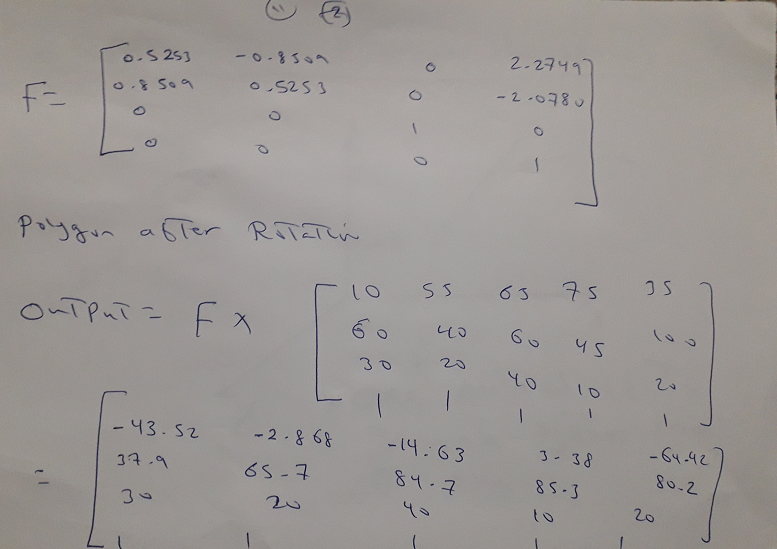 (2)
0.5253 -0.8509 0 2.2749
F= 0.8509 0.5253 0 -2.0780
0 0 1 0
0 0 0 1
Polygon after Rotation
10 55 65 75 35
OUTPUT = F x 60 40 60 45 100
30 20 40 10 20
1 1 1 1 1
-43.52 -2.868 -14.63 3.38 -64.42
= 37.9 65.7 84.7 85.3 80.2
30 20 40 10 20
1 1 1 1 1